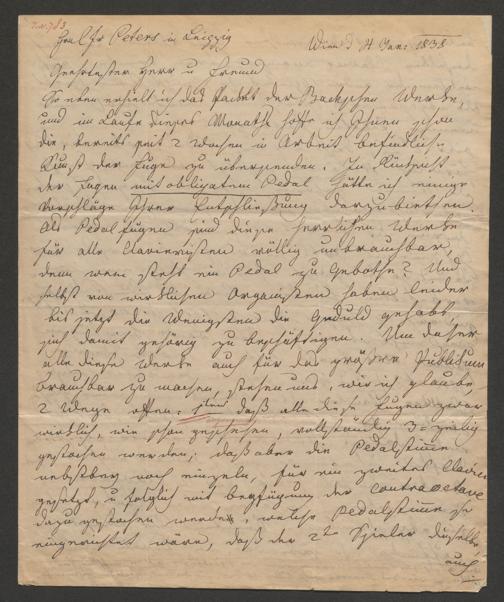 Hrn C. F. Peters in Leipzig
Wien d 4 Jan: 1838
Geehrtester Herr u Freund
So eben erhielt ich das Packet der Bachschen Werke,
und im Laufe dieses Monaths hoffe ich Ihnen schon
die, bereits seit 2 Wochen in Arbeit befindliche
Kunst der Fuge zu übersenden. In Rücksicht
der Fugen mit obligatem Pedal hätte ich einige
Vorschläge Ihrer Entschließung darzubiethen.
Als Pedalfugen sind diese herrlichen Werke
für alle Clavieristen völlig unbrauchbar,
denn wem steht ein Pedal zu Gebothe? Und
selbst von wirklichen Organisten haben leider
bis jetzt die Wenigsten die Geduld gehabt,
sich damit gehörig zu beschäftigen. Um daher
alle diese Werke auch für das größere Publikum
brauchbar zu machen, stehen uns, wie ich glaube,
2 Wege offen: daß alle diese Fugen zwar
wirklich, wie schon geschehen, vollständig 3=zeilig
gestochen werden; daß aber die Pedalstimme
nebstbey noch einzeln, für ein zweites Clavier
gesetzt, u folglich mit Beyfügung der Contraoctave
dazu gestochen werde, welche Pedalstimme so
eingerichtet wäre, daß der 2te Spieler dieselbe
auch